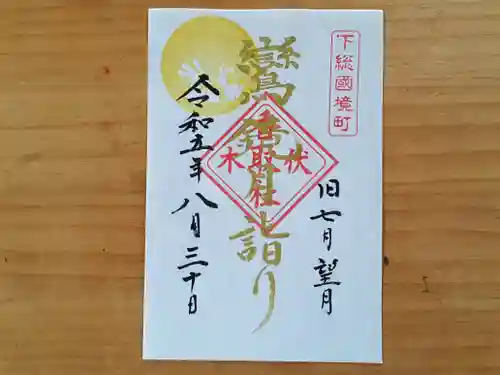 下総國境町
旧七月望月
伏木
香取社
鸞
月詣り
令和五年八月三十日